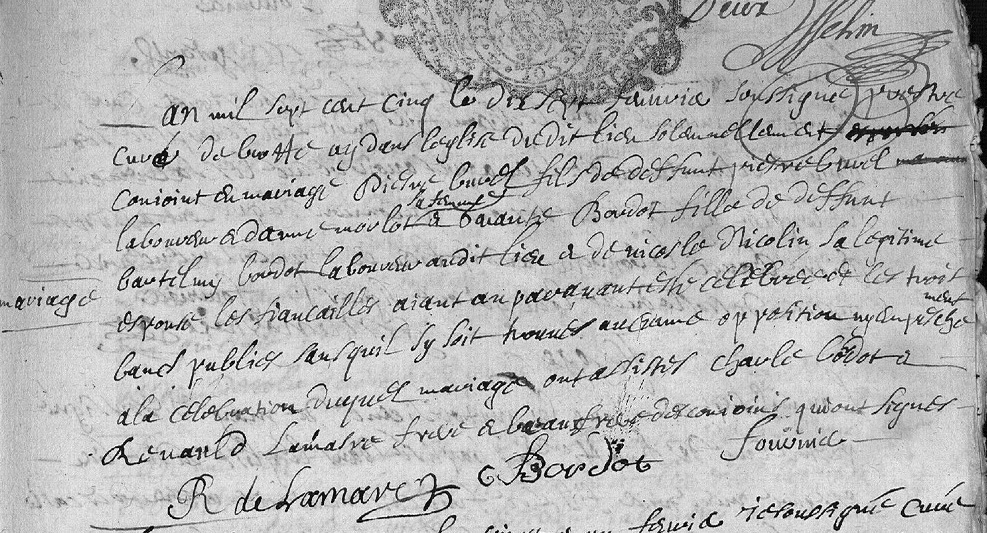 Deux
Lan mil sept cent cinq le dix sept Janvie soussigné prestre
curé de ay dans leglise dudit lieu solennellement
conjoint en mariage Pierre buvel fils de deffunt pierre buvel
laboureur & danne morlot sa femme & Bordot fille de deffunt
bartelmy bordot laboureur audit lieu & de nicolle Nicolin sa legitime
mariage
espouse les fiancailles aiant auparavant esté celebrée et les troit
bancs publies sans quil sy soit trouvés aucune opposition ny empeschement
a la celebration duquel mariage ont assistes charle bodot &
Renauld Lamarre frere & beaufrere des conioins qui ont signes
R de Lamare C Bordot
Janvie ie soussigné curé